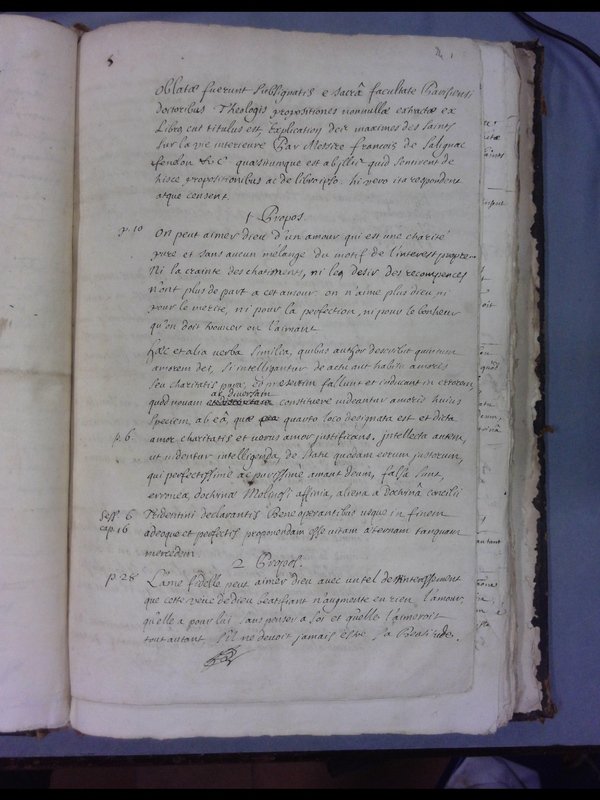 5
oblatæ fuerunt subsignatis e sacrâ facultate Parisiensi
doctoribus Theologis propositiones nonnullæ extractæ ex
Libro cui titulus est, Explication des maximes des saints
sur la vie interieure Par Messire francois de Salignac
fenelon &c quæsitumque est ab illis quid sentirent de
hisce propositionibus ac de libro ipso. hi vero ita respondent
atque censent.
1 Propos
p. 10 on peut aimer dieu d'un amour qui est une charité
pure et sans aucun mélange du motif de l'interest propre
Ni la crainte des chatiments, ni le desir des recompences
n'ont plus de part a cet amour. on n'aime plus dieu, ni
pour le merite, ni pour la perfection, ni pour le bonheur
qu'on doit trouver en l'aimant
hæc et alia verba similia, quibus author describit quintum
amorem dei, si intelligantur de actu aut habitu amoris
seu charitatis puræ, eo præsertim fallunt et inducunt in errorem,
ac diversam
quod novam constituere videantur amoris huius
speciem, ab eâ, quæ quarto loco designata est et dicta
p. 6. amor charitatis et verus amor justificans. intellecta autem,
ut videntur intelligenda, de statu quodam eorum justorum,
qui perfectissime ac purissime amant deum, falsa sunt,
erronea, doctrinæ Molinosi affinia, aliena a doctrina concilii
Sess. 6 Tridentini declarantis Bene operantibus usque in finem
cap. 16 adeoque et perfectis proponendam esse vitam æternam tanquam
mercedem.
2 Propos.
p 28 L'ame fidelle peut aimer dieu avec un tel desinteressement
que cette veüe de dieu beatifiant n'augmente en rien l'amour
qu'elle a pour lui, sans penser a soi et qu'elle l'aimeroit
tout autant, s'il ne devoit jamais estre sa Beatitude.